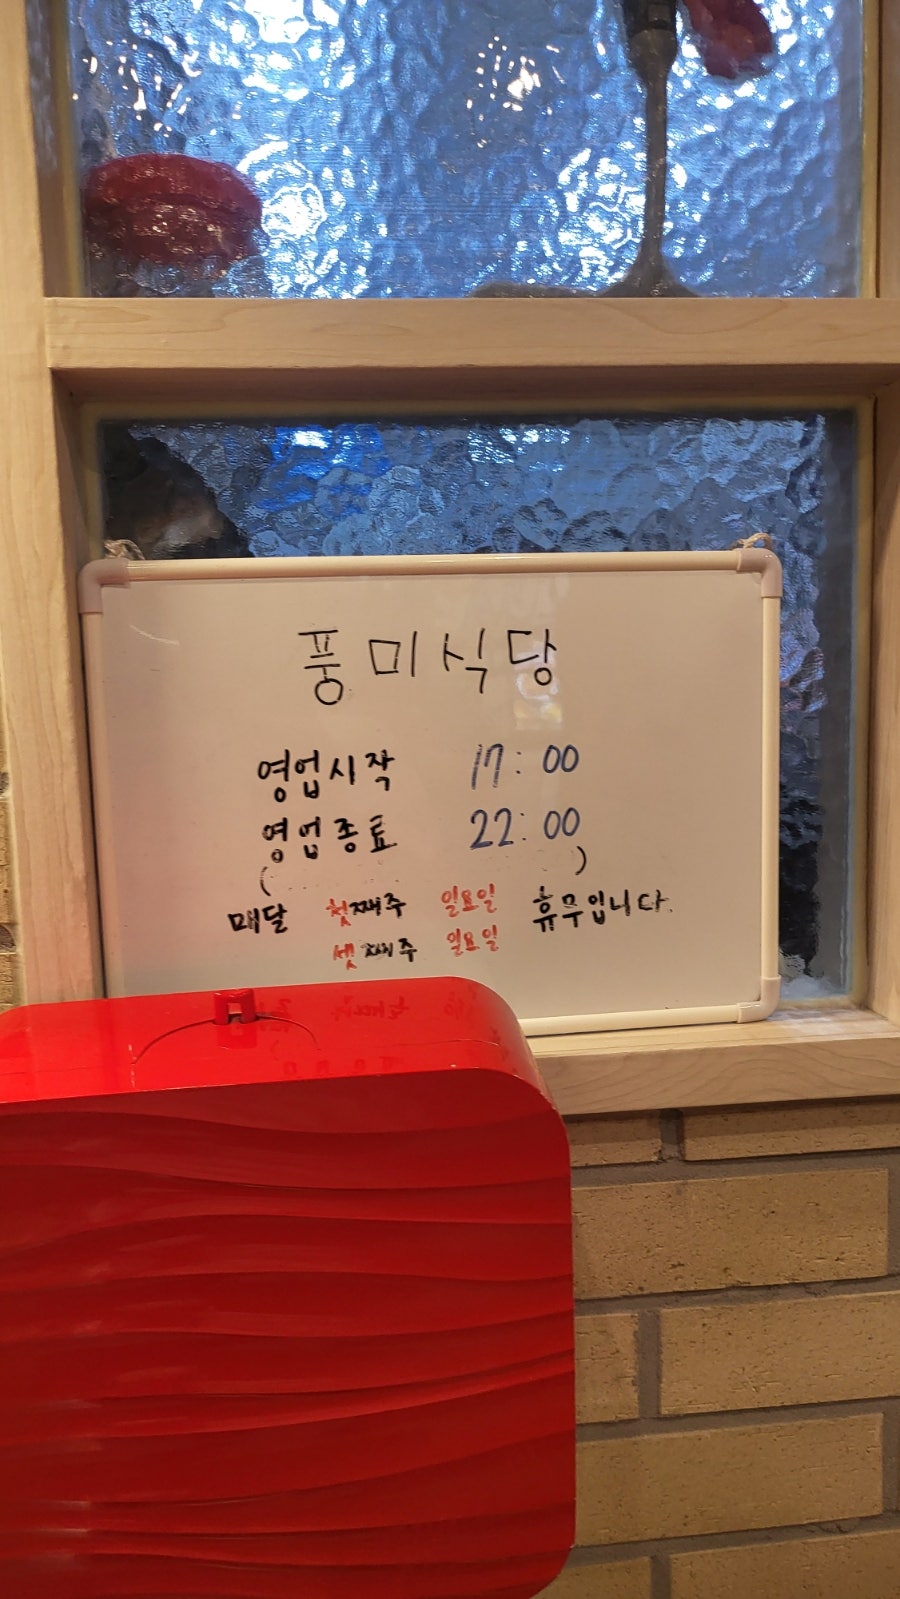 풍미식당
영업시작 17:00
영업종료 22:00
( )
매달 첫째주 일요일 휴무입니다.
셋째주 일요일